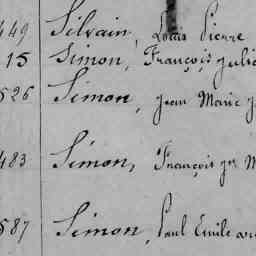 449 Silvain, Louis Pierre
15 Simon, François Julie
526 Simon, Jean Marie
483 Simon, François
587 Simon, Paul Emile